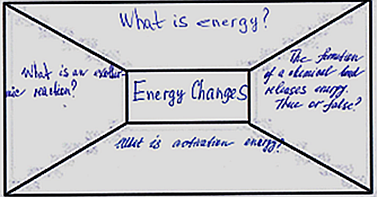 What is energy?
What is an exother-
mic reaction?
Energy Changes
The formation
of a chemical bond
releases energy.
True or false?
What is activation energy?